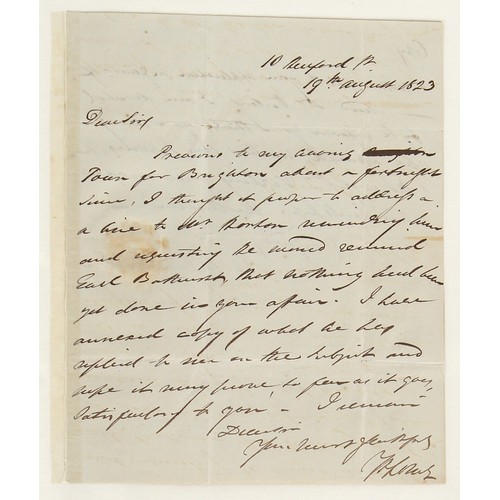 10 St
19th August 1823
Dear Sir
Previous to my leaving
Town for Brighton about a fortnight
since, I thought it proper to address
a line to Mr Horton reminding him
and requesting he would remind
Earl Bathurst, that nothing had been
yet done in your affair. I have
annexed copy of what he has
replied to me on the subject and
hope it may prove, so far as it goes,
satisfactory to you - I remain
Dear Sir
Your most